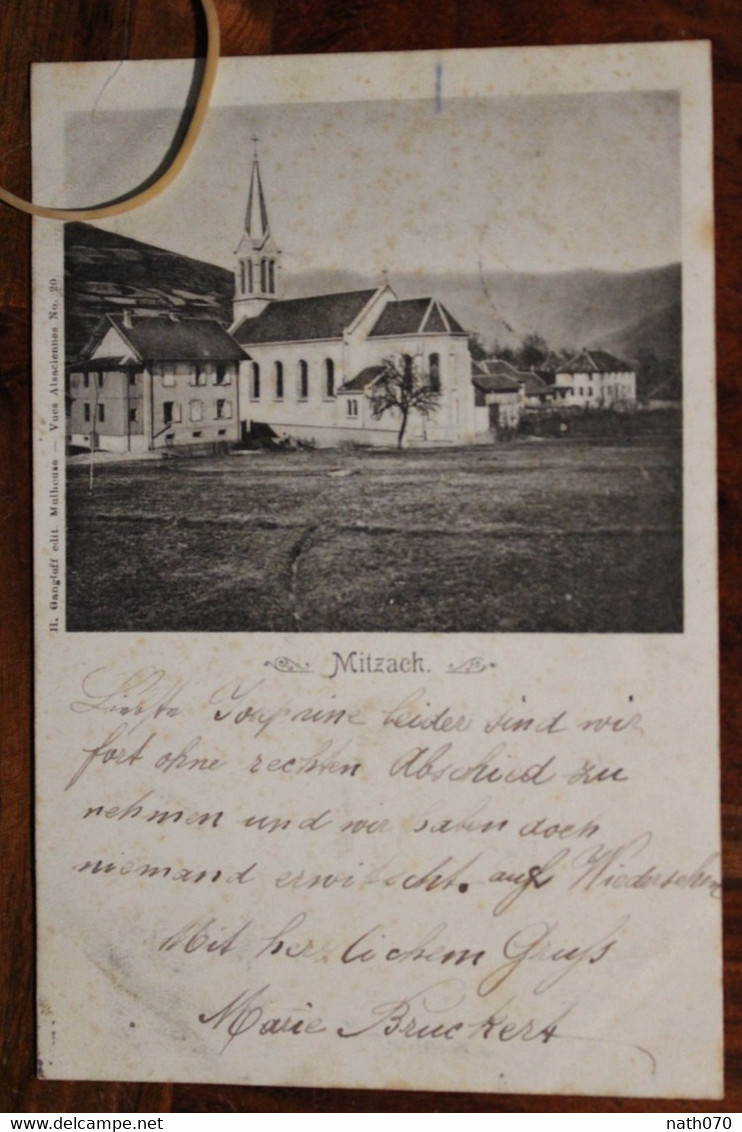 H. Gangloff edit. Mulhouse — Vues Alsaciennes No. 20
Mitzach.
Liebste Josephine leider sind wir
fort ohne rechten Abschied zu
nehmen und wir haben doch
niemand erwitscht. auf Wiedersehen
Mit herzlichem Gruss
Marie Bruckert
nath070